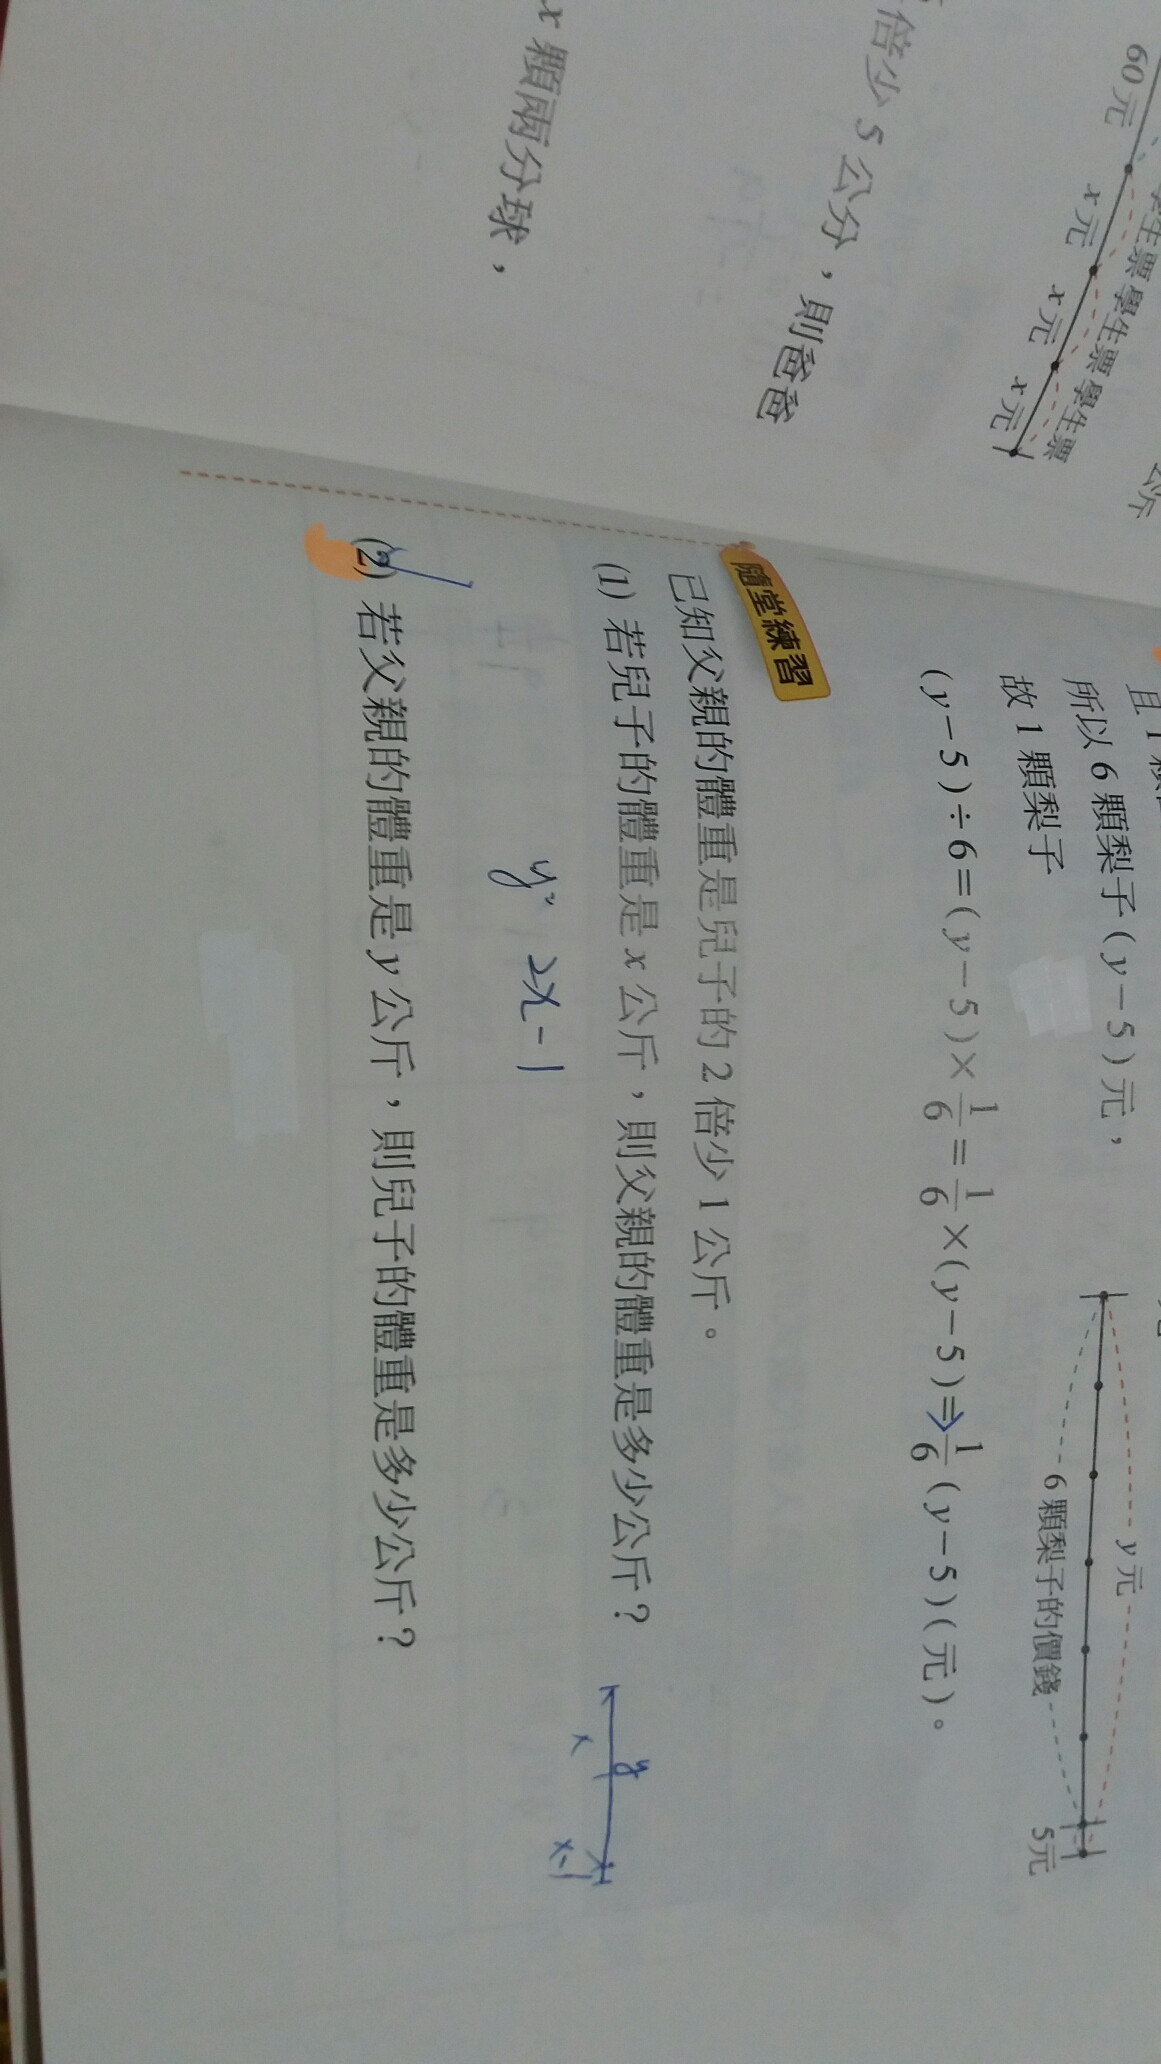 60元
x元 x元 x元
學生票 學生票 學生票
公斤
倍少 5 公分，則爸爸
x 顆兩分球，
所以 6 顆梨子 ( y－5 ) 元，
故 1 顆梨子
( y－5 )÷6＝( y－5 )×1/6＝1/6×( y－5 )＝⇒1/6 ( y－5 ) ( 元 )。
y 元
6 顆梨子的價錢
5元
隨堂練習
已知父親的體重是兒子的 2 倍少 1 公斤。
(1) 若兒子的體重是 x 公斤，則父親的體重是多少公斤？
y
x x-1
y= 2x-1
(2) 若父親的體重是 y 公斤，則兒子的體重是多少公斤？